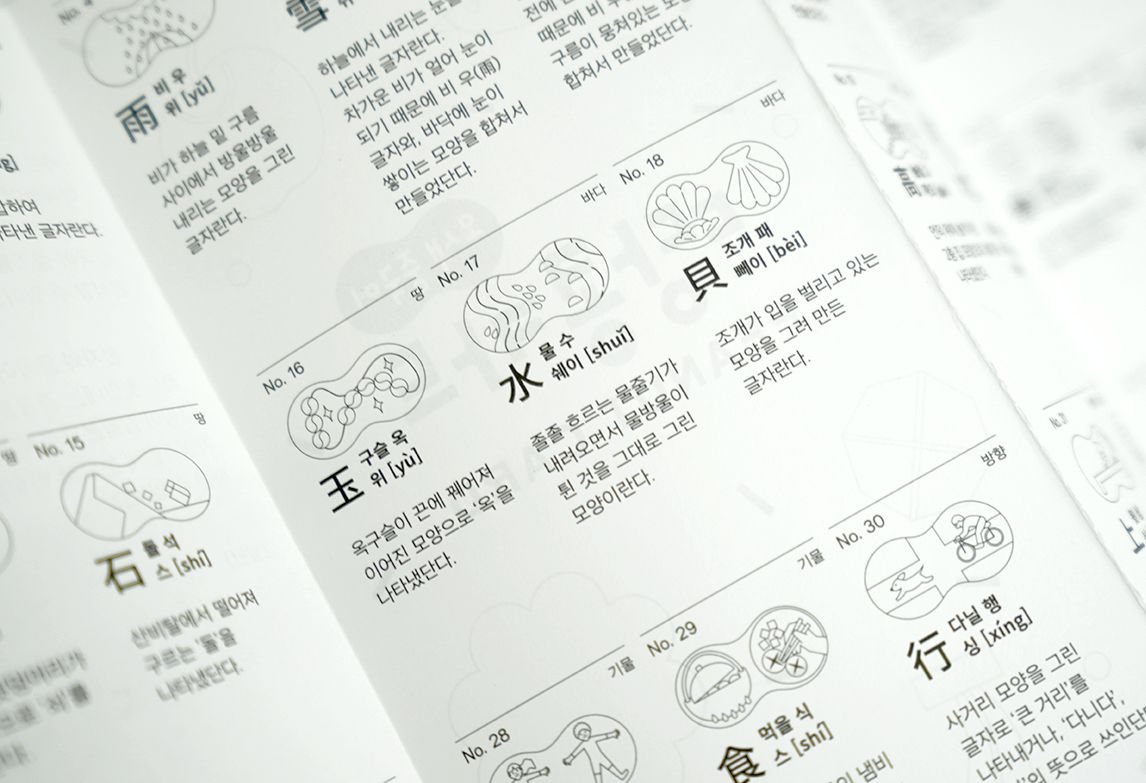 No. 4
雨 비 우
위 [yǔ]
비가 하늘 밑 구름
사이에서 방울방울
내리는 모양을 그린
글자란다.
雪
하늘에서 내리는 눈을
나타낸 글자란다.
차가운 비가 얼어 눈이
되기 때문에 비 우(雨)
글자와, 바닥에 눈이
쌓이는 모양을 합쳐서
만들었단다.
때문에 비 우
구름이 뭉쳐있는 모양
합쳐서 만들었단다.
땅
No. 15
땅
石 돌 석
스 [shí]
산비탈에서 떨어져
구르는 '돌'을
나타냈단다.
No. 16
땅
玉 구슬 옥
위 [yù]
옥구슬이 끈에 꿰어져
이어진 모양으로 '옥'을
나타냈단다.
No. 17
바다
水 물 수
쉐이 [shuǐ]
졸졸 흐르는 물줄기가
내려오면서 물방울이
튄 것을 그대로 그린
모양이란다.
No. 18
바다
貝 조개 패
뻬이 [bèi]
조개가 입을 벌리고 있는
모양을 그려 만든
글자란다.
No. 28
기물
No. 29
기물
食 먹을 식
스 [shí]
냄비
No. 30
방향
行 다닐 행
싱 [xíng]
사거리 모양을 그린
글자로 '큰 거리'를
나타내거나, '다니다',
뜻으로 쓰인단다
上